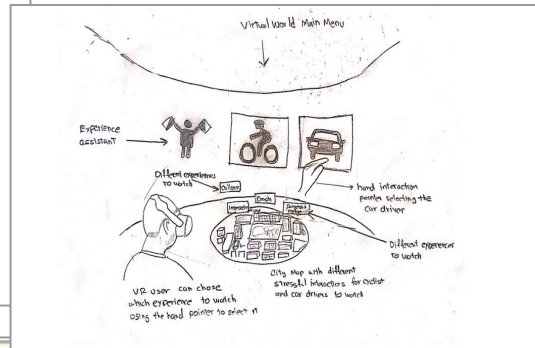 Virtual World Main Menu
Experience
assistant
Different experiences
to watch
Collision
Crash
hand interaction
pointer selecting the
car driver
Different experiences
to watch
City Map with different
stressful interactions for cyclist
and car drivers to watch
VR user can chose
which experience to watch
using the hand pointer to select it